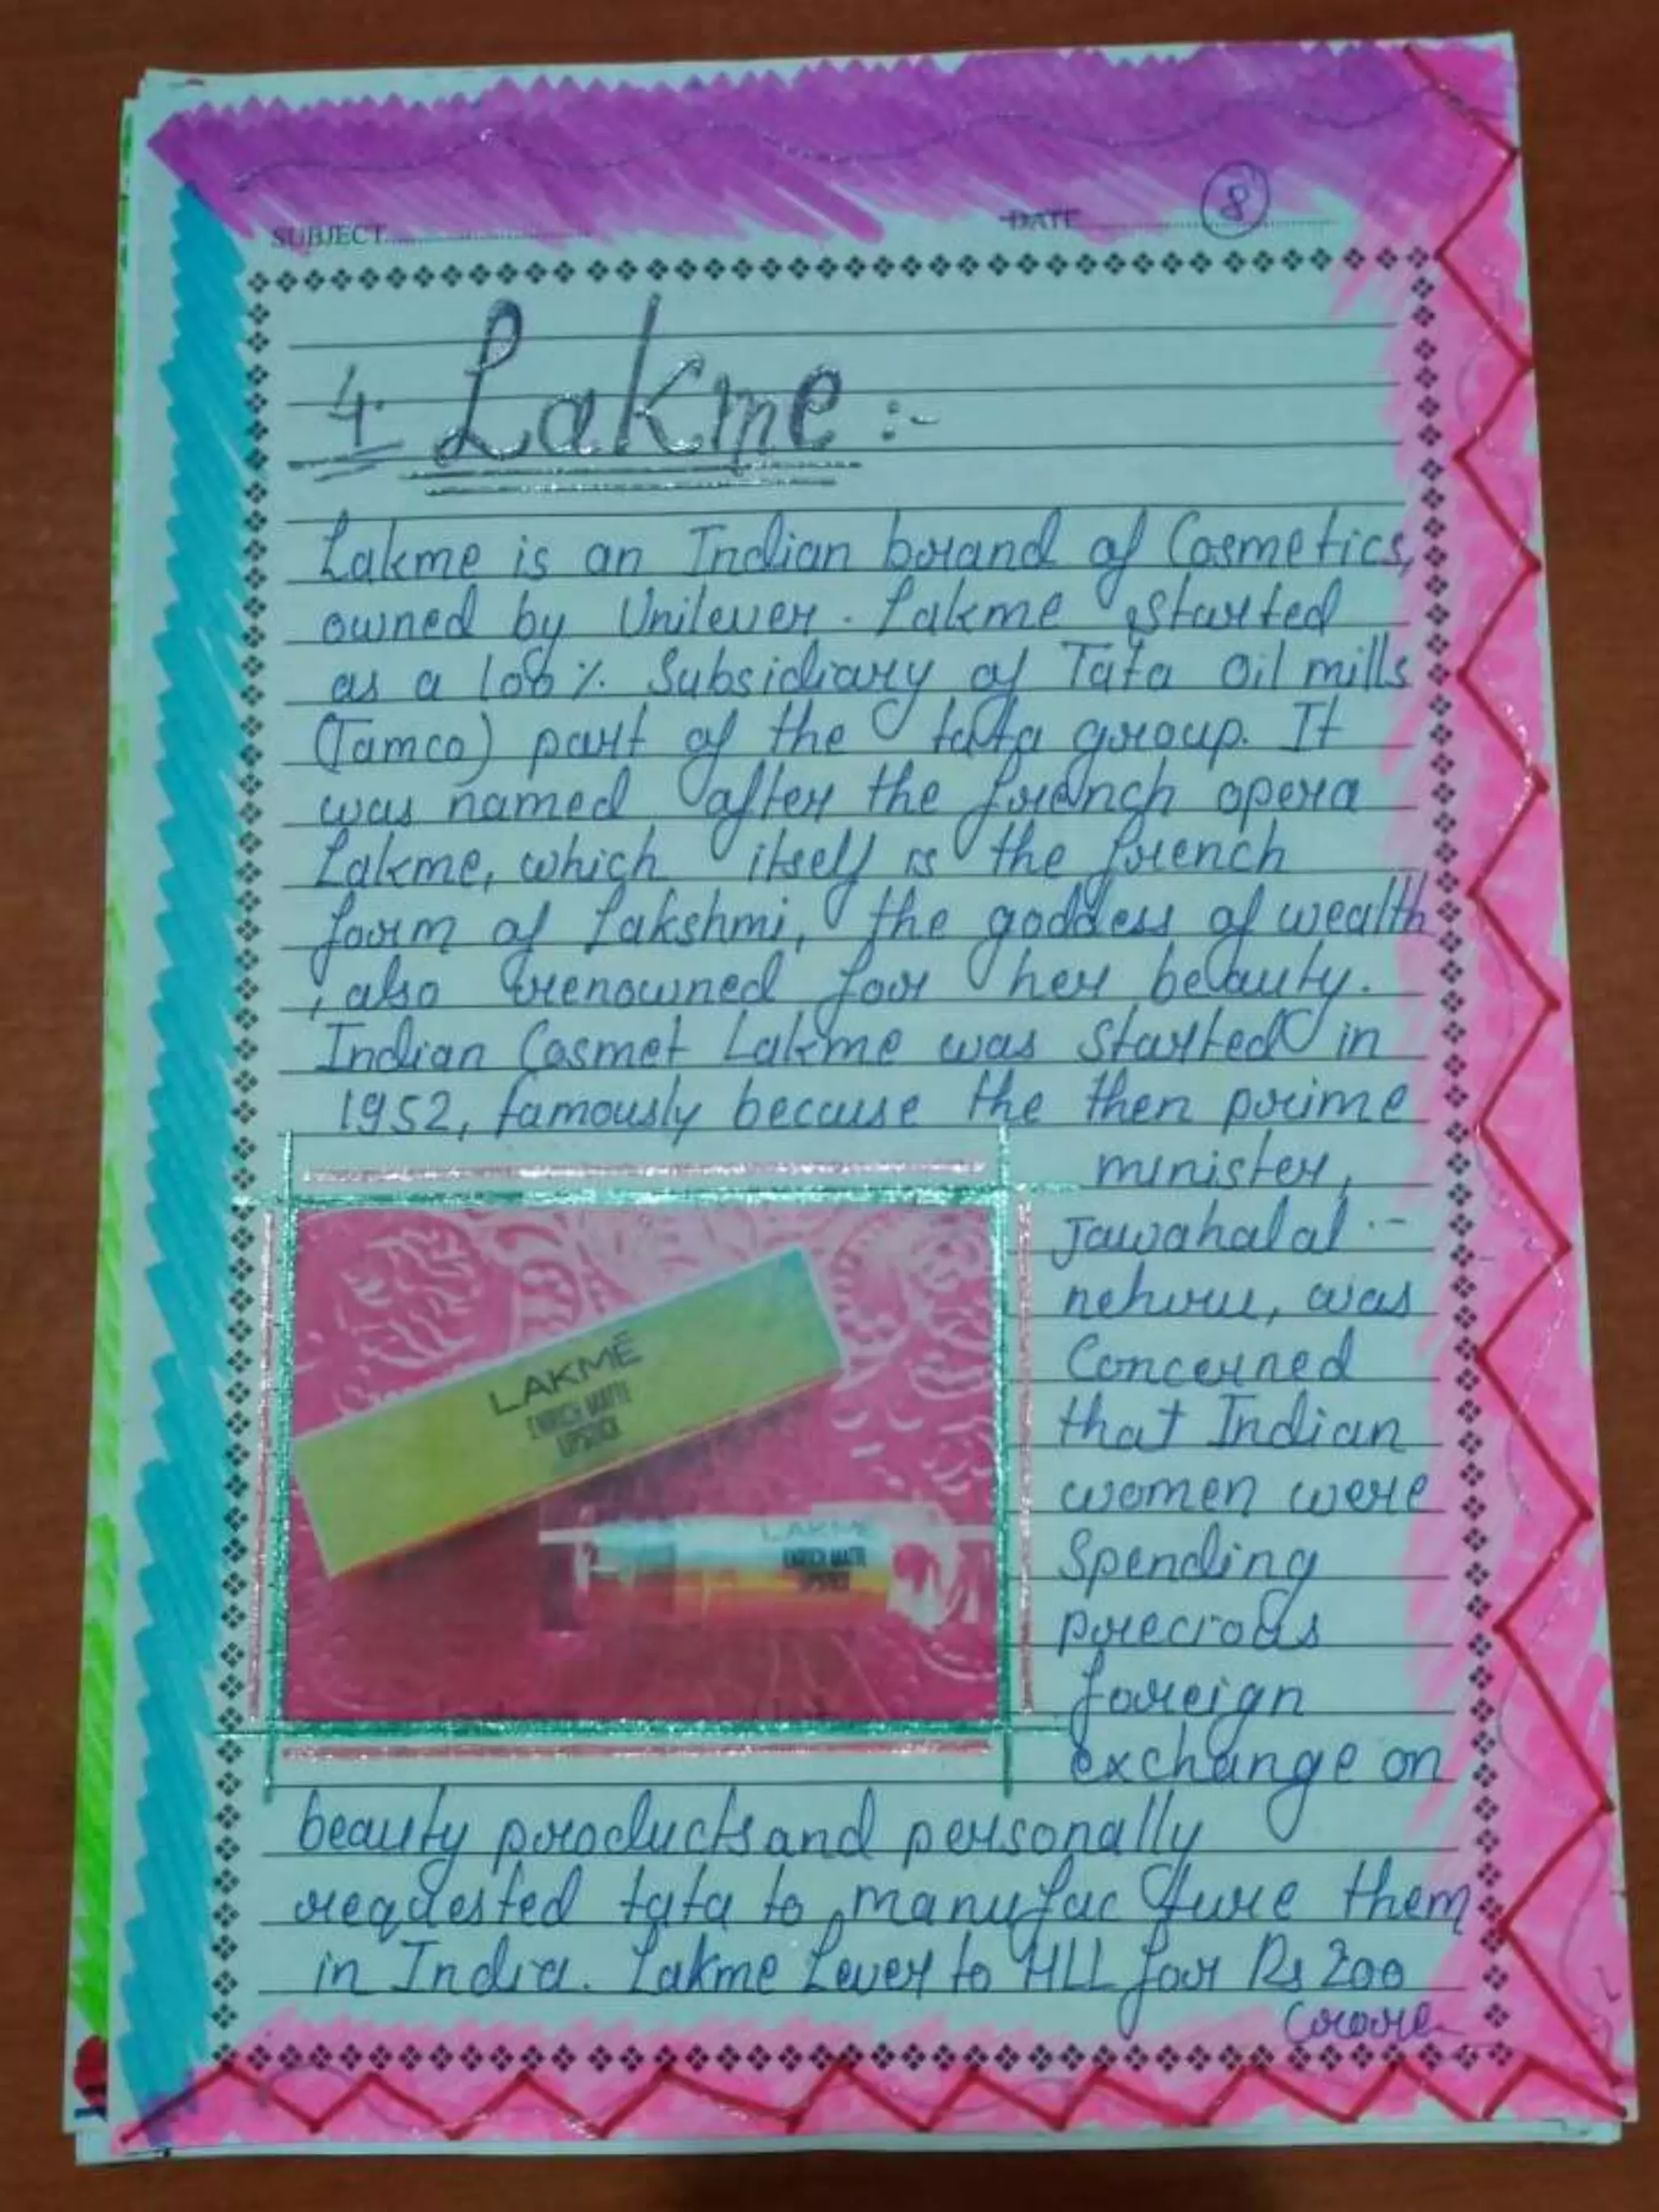 SUBJECT
DATE
8
4. Lakme :-
Lakme is an Indian brand of Cosmetics,
owned by Unilever. Lakme started
as a 100% Subsidiary of Tata Oil mills
(Tamco) part of the tata group. It
was named after the french opera
Lakme, which itself is the french
form of Lakshmi, the goddess of wealth
, also renowned for her beauty.
Indian Cosmet Lakme was started in
1952, famously because the then prime
minister,
Jawahalal -
nehru, was
Concerned
that Indian
women were
Spending
precious
foreign
exchange on
LAKMÉ
ENRICH MATTE
LIPSTICK
LAKMÉ
ENRICH MATTE
beauty products and personally
requested tata to manufacture them
in India. Lakme Lever to HLL for Rs 200
crore